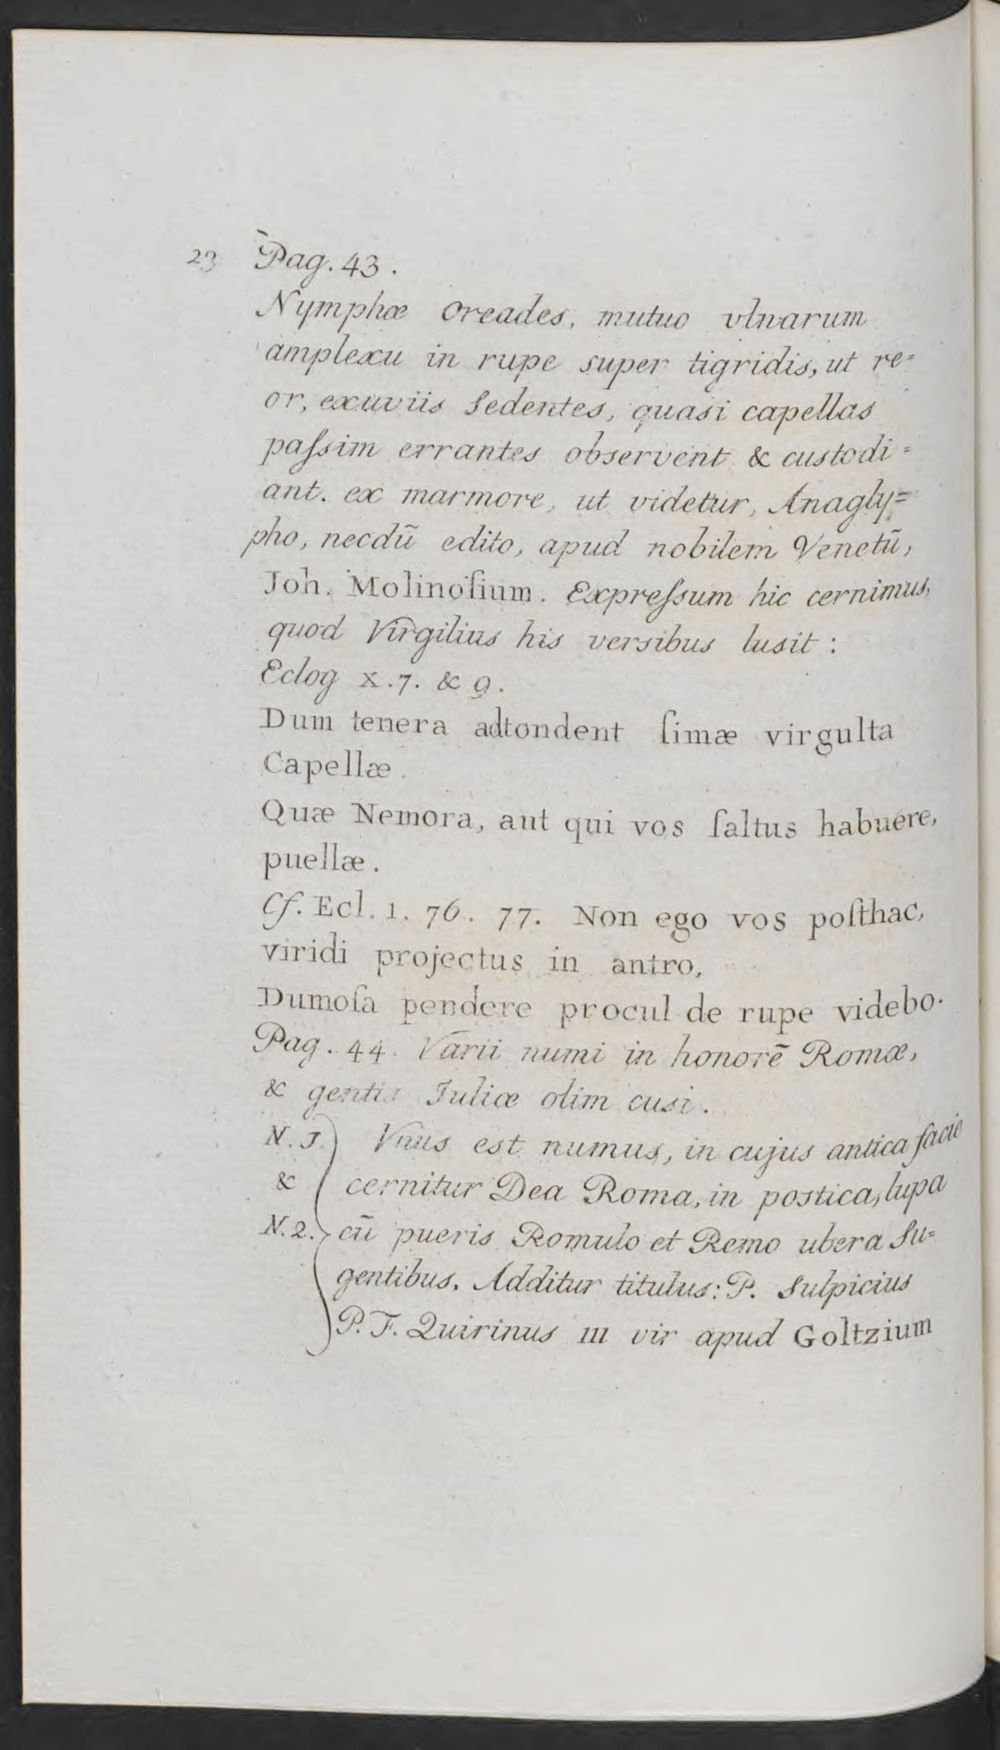 23 Pag. 43.
Nymphæ Oreades, mutuo vlnarum
amplexu in rupe super tigridis, ut re=
or, exuviis Sedentes, quasi capellas
paſsim errantes observent & custodi=
ant. ex marmore, ut videtur, Anagly=
pho, necdū edito, apud nobilem Venetū,
Joh. Molinoſium. Expreſsum hic cernimus,
quod Virgilius his versibus lusit:
Eclog x. 7. & 9.
Dum tenera adtondent ſimæ virgulta
Capellæ.
Quæ Nemora, aut qui vos ſaltus habuere,
puellæ.
Cf. Ecl. 1. 76. 77. Non ego vos poſthac,
viridi projectus in antro,
Dumoſa pendere procul de rupe videbo.
Pag. 44. Varii numi in honorē Romæ,
& gentis Iuliæ olim cusi.
N. 1.) Vnus est numus, in cujus antica facie
& cernitur Dea Roma, in postica, lupa
N. 2. cū pueris Romulo et Remo ubera Su=
gentibus. Additur titulus: P. Sulpicius
P. F. Quirinus III vir apud Goltzium